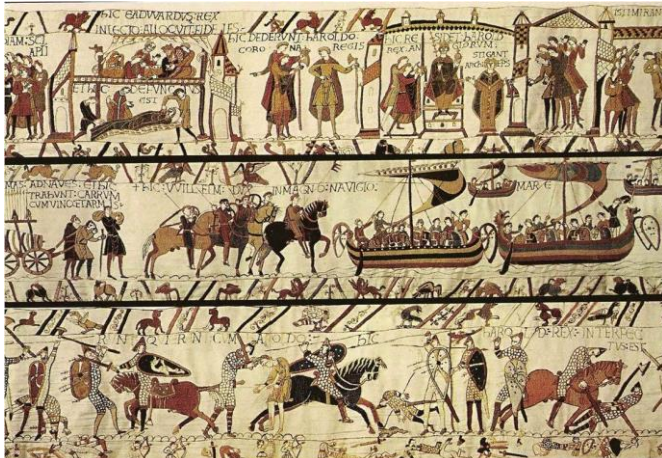 hIC EADWARDVS:REX
IN LECTO:ALLOQVIT:FIDELES:
hIC DEDERVNT:hAROLDO
CORO NA REGIS
hIC RESIDET:hAROLD
REX:AN GLORVM:
STIGANT
ARChIEPS
ISTI MIRANT
ET hIC:DEFVNCTVS
EST
AD NAVES:ET hIC
TRAhVNT:CARRVM
CVM VINO:ET ARMIS:
+hIC:VVILLELM:DVX IN MAGNO:NAVIGIO:
MARE
hIC
hAROLD:REX:INTERFEC
TVS:EST